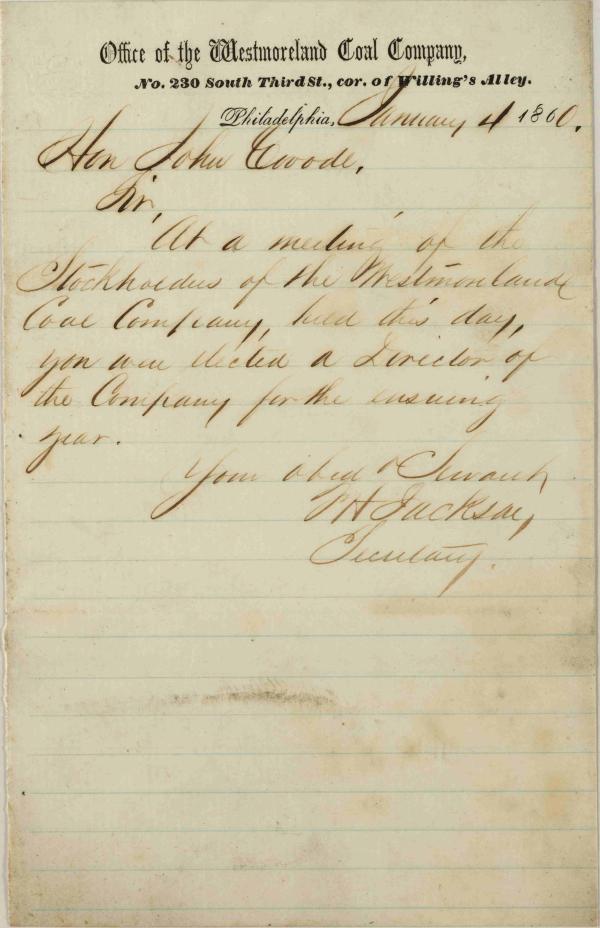 Office of the Westmoreland Coal Company,
No. 230 South Third St., cor. of Willing's Alley.
Philadelphia, January 4 1860.
Hon John Covode.
Sir,
At a meeting of the
Stockholders of the Westmoreland
Coal Company, held this day,
you were elected a Director of
the Company for the ensuing
year.
Your obed't Servant,
H Jackson,
Secretary.